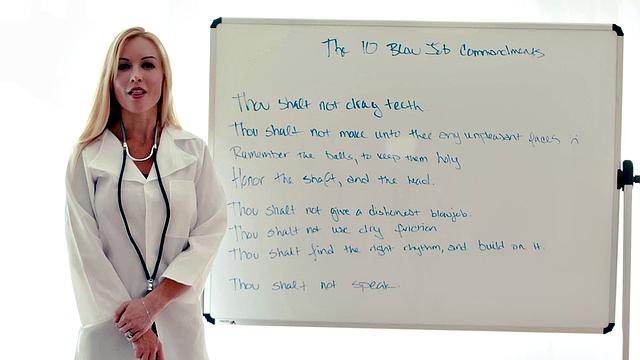 The 10 Blow Job Commandments
Thou shalt not drag teeth
Thou shalt not make unto thee any unpleasant faces
Remember the balls, to keep them holy
Honor the shaft, and the head.
Thou shalt not give a dishonest blowjob.
Thou shalt not use dry friction
Thou shalt find the right rhythm, and build on it.
Thou shalt not speak.